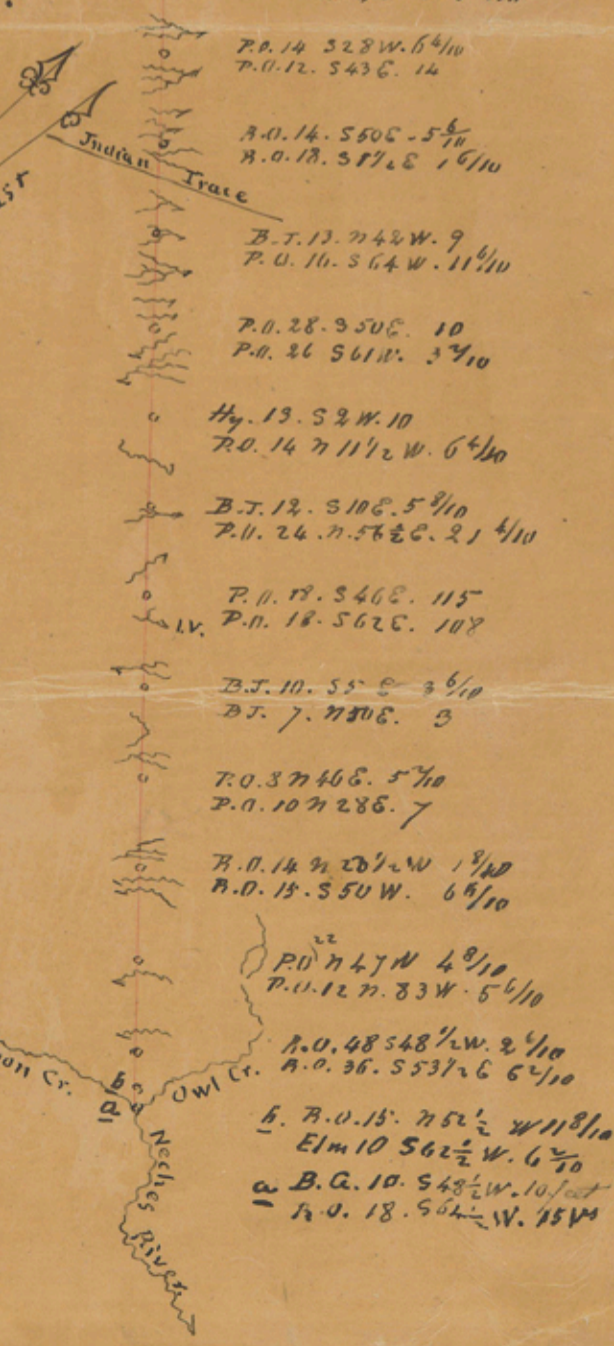 P.O. 14 S28W. 6 4/10
P.O. 12. S43E. 14
R.O. 14. S50E - 5 6/10
R.O. 18. S 7 1/2 E 1 6/10
Indian Trace
B.J. 13. N42W. 9
P.O. 16. S64W. 11 6/10
P.O. 28. S50E. 10
P.O. 26 S61W. 3 7/10
Hy. 13. S2W. 10
P.O. 14 N 11 1/2 W. 6 4/10
B.J. 12. S10E. 5 8/10
P.O. 24. N.56 1/2 E. 21 4/10
P.O. 18. S46E. 115
I.V. P.O. 18. S62E. 108
B.J. 10. S5E 3 6/10
BJ. 7. N50E. 3
P.O. 8 N46E. 5 7/10
P.O. 10 N28E. 7
R.O. 14 N 1/2 W 1 8/10
R.O. 15. S50W. 6 6/10
P.O 22 N47W 4 8/10
P.O. 12 N. 83W. 5 6/10
R.O. 48 S48 1/2 W. 2 6/10
R.O. 36. S53 1/2 E 6 2/10
on Cr.
Owl Cr.
b
a
b. R.O. 15. N52 1/2 W 11 8/10
Elm 10 S62 1/2 W. 6 2/10
a B.G. 10. S48 1/2 W. 10
R.O. 18. S64 1/2 W. 15 Vs
Neches River